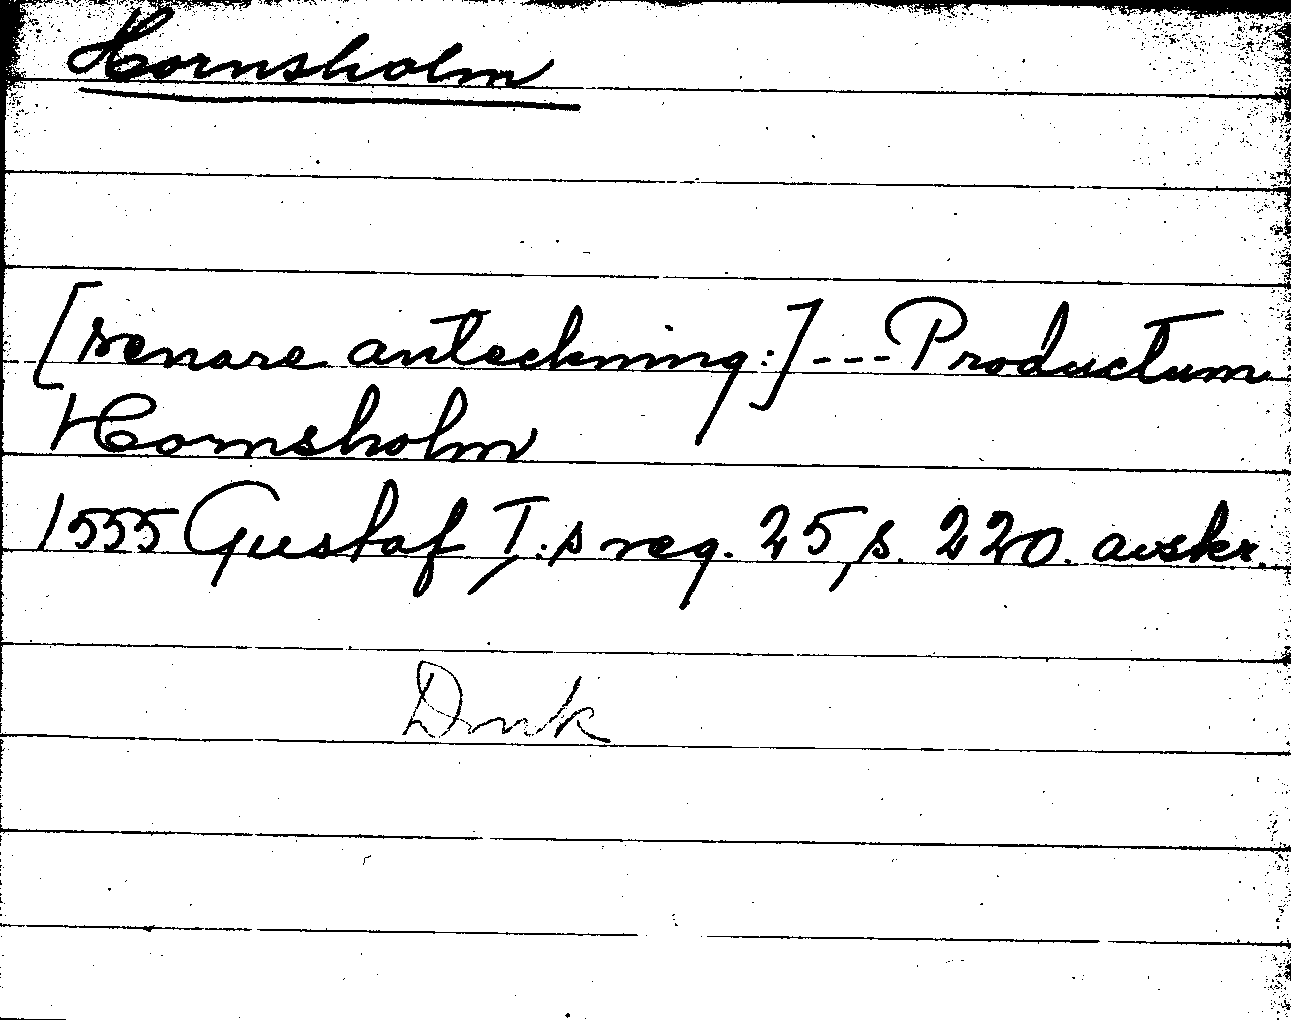 Hornsholm
[senare anteckning:] --- Productum
Hornsholm
1555 Gustaf I:s reg. 25, s. 220. avskr.